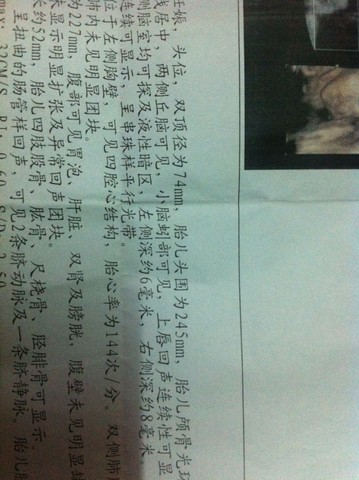 妊娠，头位，双顶径为74mm，胎儿头围为245mm，胎儿颅骨光环
线居中，两侧丘脑可见，小脑蚓部可见，上唇回声连续性可显
侧脑室均可探及液性暗区，左侧深约6毫米，右侧深约8毫米。
连续可显示，呈串珠样平行光带。
位于左侧胸壁，可见四腔心结构，胎心率为144次/分。双侧肺
肺内未见明显团块。
为227mm，腹部可见胃泡、肝脏、双肾及膀胱，腹壁未见明显
未显示明显扩张及异常回声团块。
长约52mm，胎儿四肢股骨、肱骨、尺桡骨、胫腓骨可显示。
呈扭曲的肠管样回声，可见2条脐动脉及一条脐静脉，胎儿